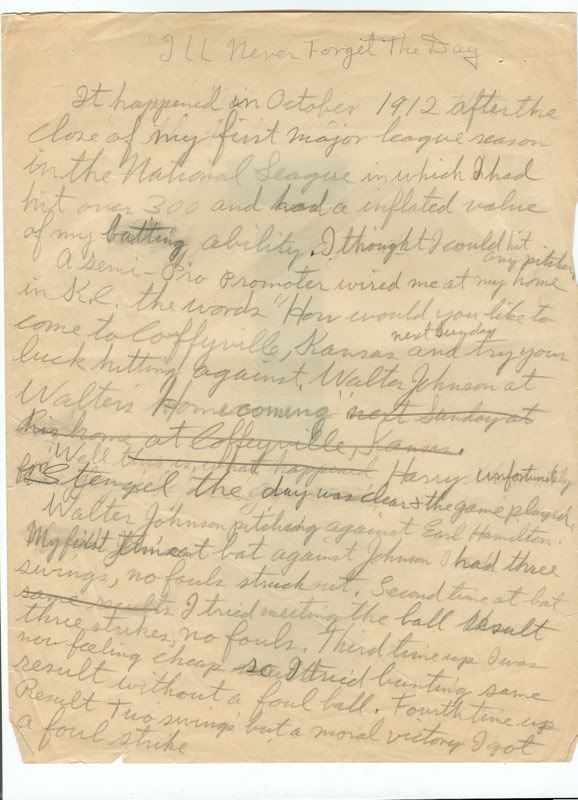 "I'll Never Forget The Day
It happened in October 1912 after the
close of my first major league season
in the National League in which I had
hit over 300 and had a inflated value
of my batting ability. I thought I could hit
any pitcher.
A semi-Pro Promoter wired me at my home
in K.C. the words "How would you like to
come to Coffyville, Kansas and try your
next Sunday
luck hitting against Walter Johnson at
Walter's Homecoming" next Sunday at
his home at Coffeyville, Kansas.
"Well this is what happened Harry unfortunately
for Stengel the day was clear & the game played.
Walter Johnson pitching against Earl Hamilton.
My first time at bat against Johnson I had three
swings, no fouls struck out. Second time at bat
same results I tried meeting the ball result
three strikes, no fouls. Third time up I was
now feeling cheap so I tried bunting same
result without a foul ball. Fourth time up
Result Two swings but a moral victory I got
a foul strike